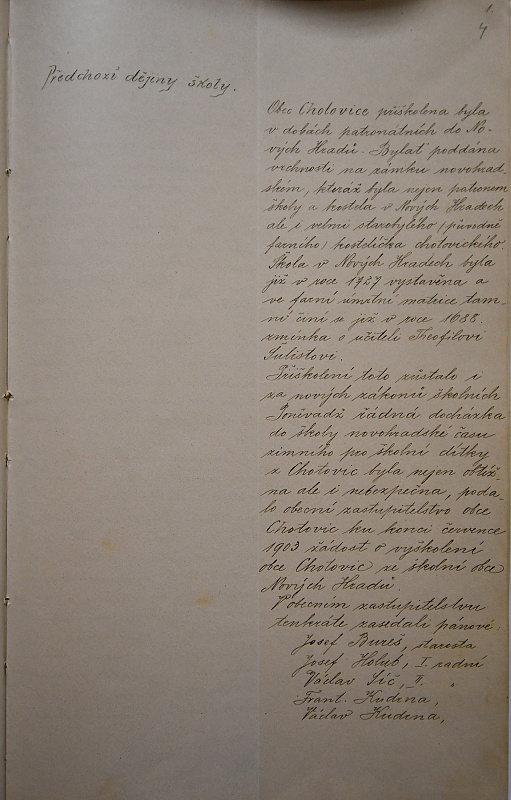 1.
4
Předchozí dějiny školy.
Obec Chotovice přiškolena byla
v dobách patronátních do No-
vých Hradů. Bylať poddána
vrchnosti na zámku novohrad-
ském, kteráž byla nejen patronem
školy a kostela v Nových Hradech
ale i velmi starobylého /původně
farního/ kostelíčka chotovického.
Škola v Nových Hradech byla
již v roce 1727 vystavěna a
ve farní úmrtní matrice tam-
ní činí se již v roce 1688.
zmínka o učiteli Theofilovi
Šulistovi.
Přiškolení toto zůstalo i
za nových zákonů školních
Poněvadž řádná docházka
do školy novohradské času
zimního pro školní dítky
z Chotovic byla nejen obtíž-
na ale i nebezpečna, poda-
lo obecní zastupitelstvo obce
Chotovic ku konci července
1903 žádost o vyškolení
obce Chotovic ze školní obce
Nových Hradů.
V obecním zastupitelstvu
tenkráte zasedali pánové:
Josef Bureš, starosta
Josef Holub, I. radní
Václav Síč, II. "
Frant. Kudrna,
Václav Kudrna,